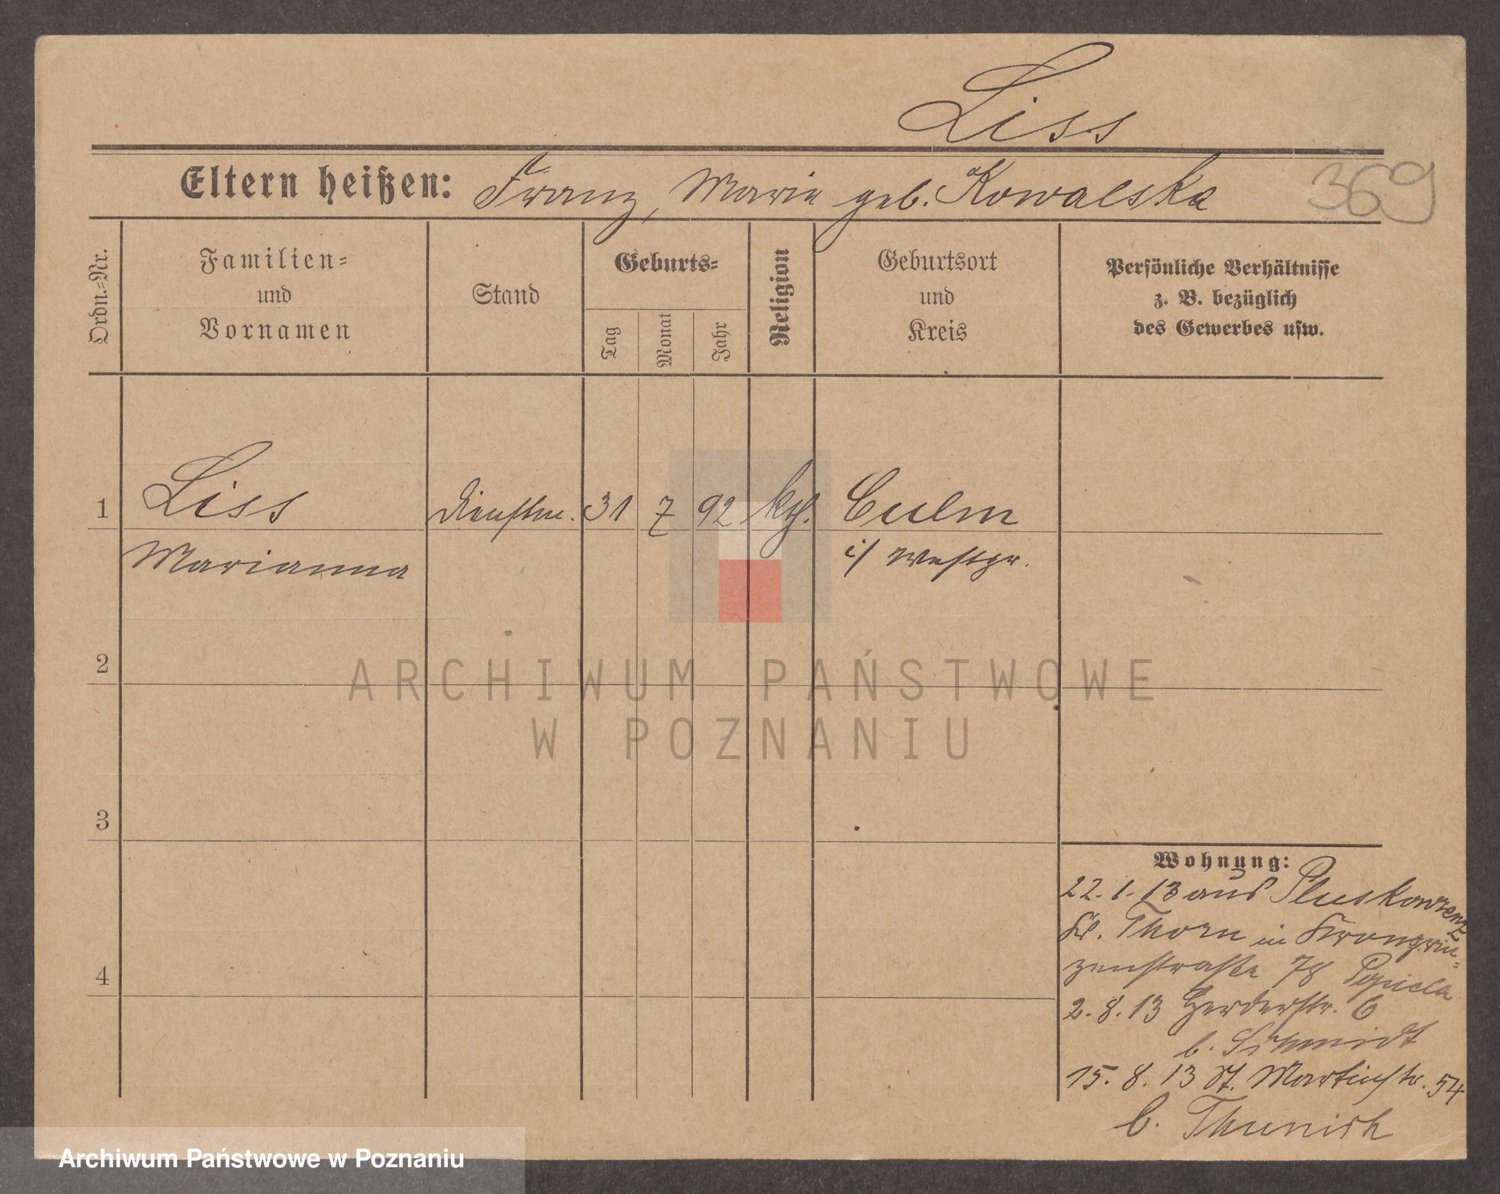 Liss
Eltern heißen: Franz, Marie geb. Kowalska
369
Ordn.-Nr.
Familien-
und
Vornamen
Stand
Geburts-
Tag
Monat
Jahr
Religion
Geburtsort
und
Kreis
Persönliche Verhältnisse
z. B. bezüglich
des Gewerbes usw.
1 Liss Dienstm. 31 7 92 kth. Culm
Marianna i/ Westpr.
2
ARCHIWUM PAŃSTWOWE
W POZNANIU
3
4
Wohnung:
22.1.13 aus Pluskowrenz
Kr. Thorn in Kronprin-
zenstraße 78
2.8.13 Herderstr. 6
b. Schmidt
15.8.13 St. Martinstr. 54
b.
Archiwum Państwowe w Poznaniu